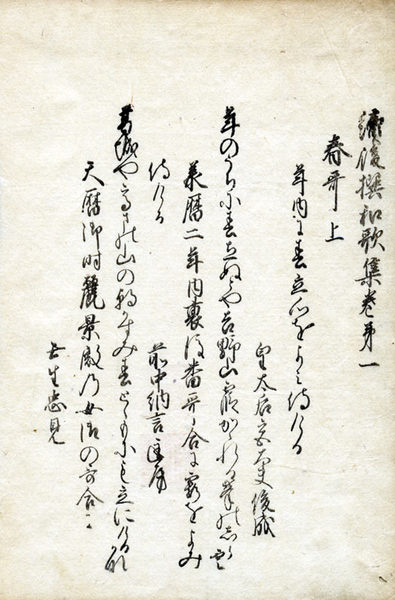 續後撰和歌集巻第一
春哥上
年内に春立心をよみ侍ける
皇太后宮大夫俊成
年のうちに春立ぬとや吉野山霞かゝれる峯のしら雪
承暦二年内裏後番哥合に霞をよみ
侍ける　前中納言匡房
葛城や高まの山の朝かすみ春とゝもにも立にける哉
天暦御時麗景殿乃女御の哥合に
壬生忠見